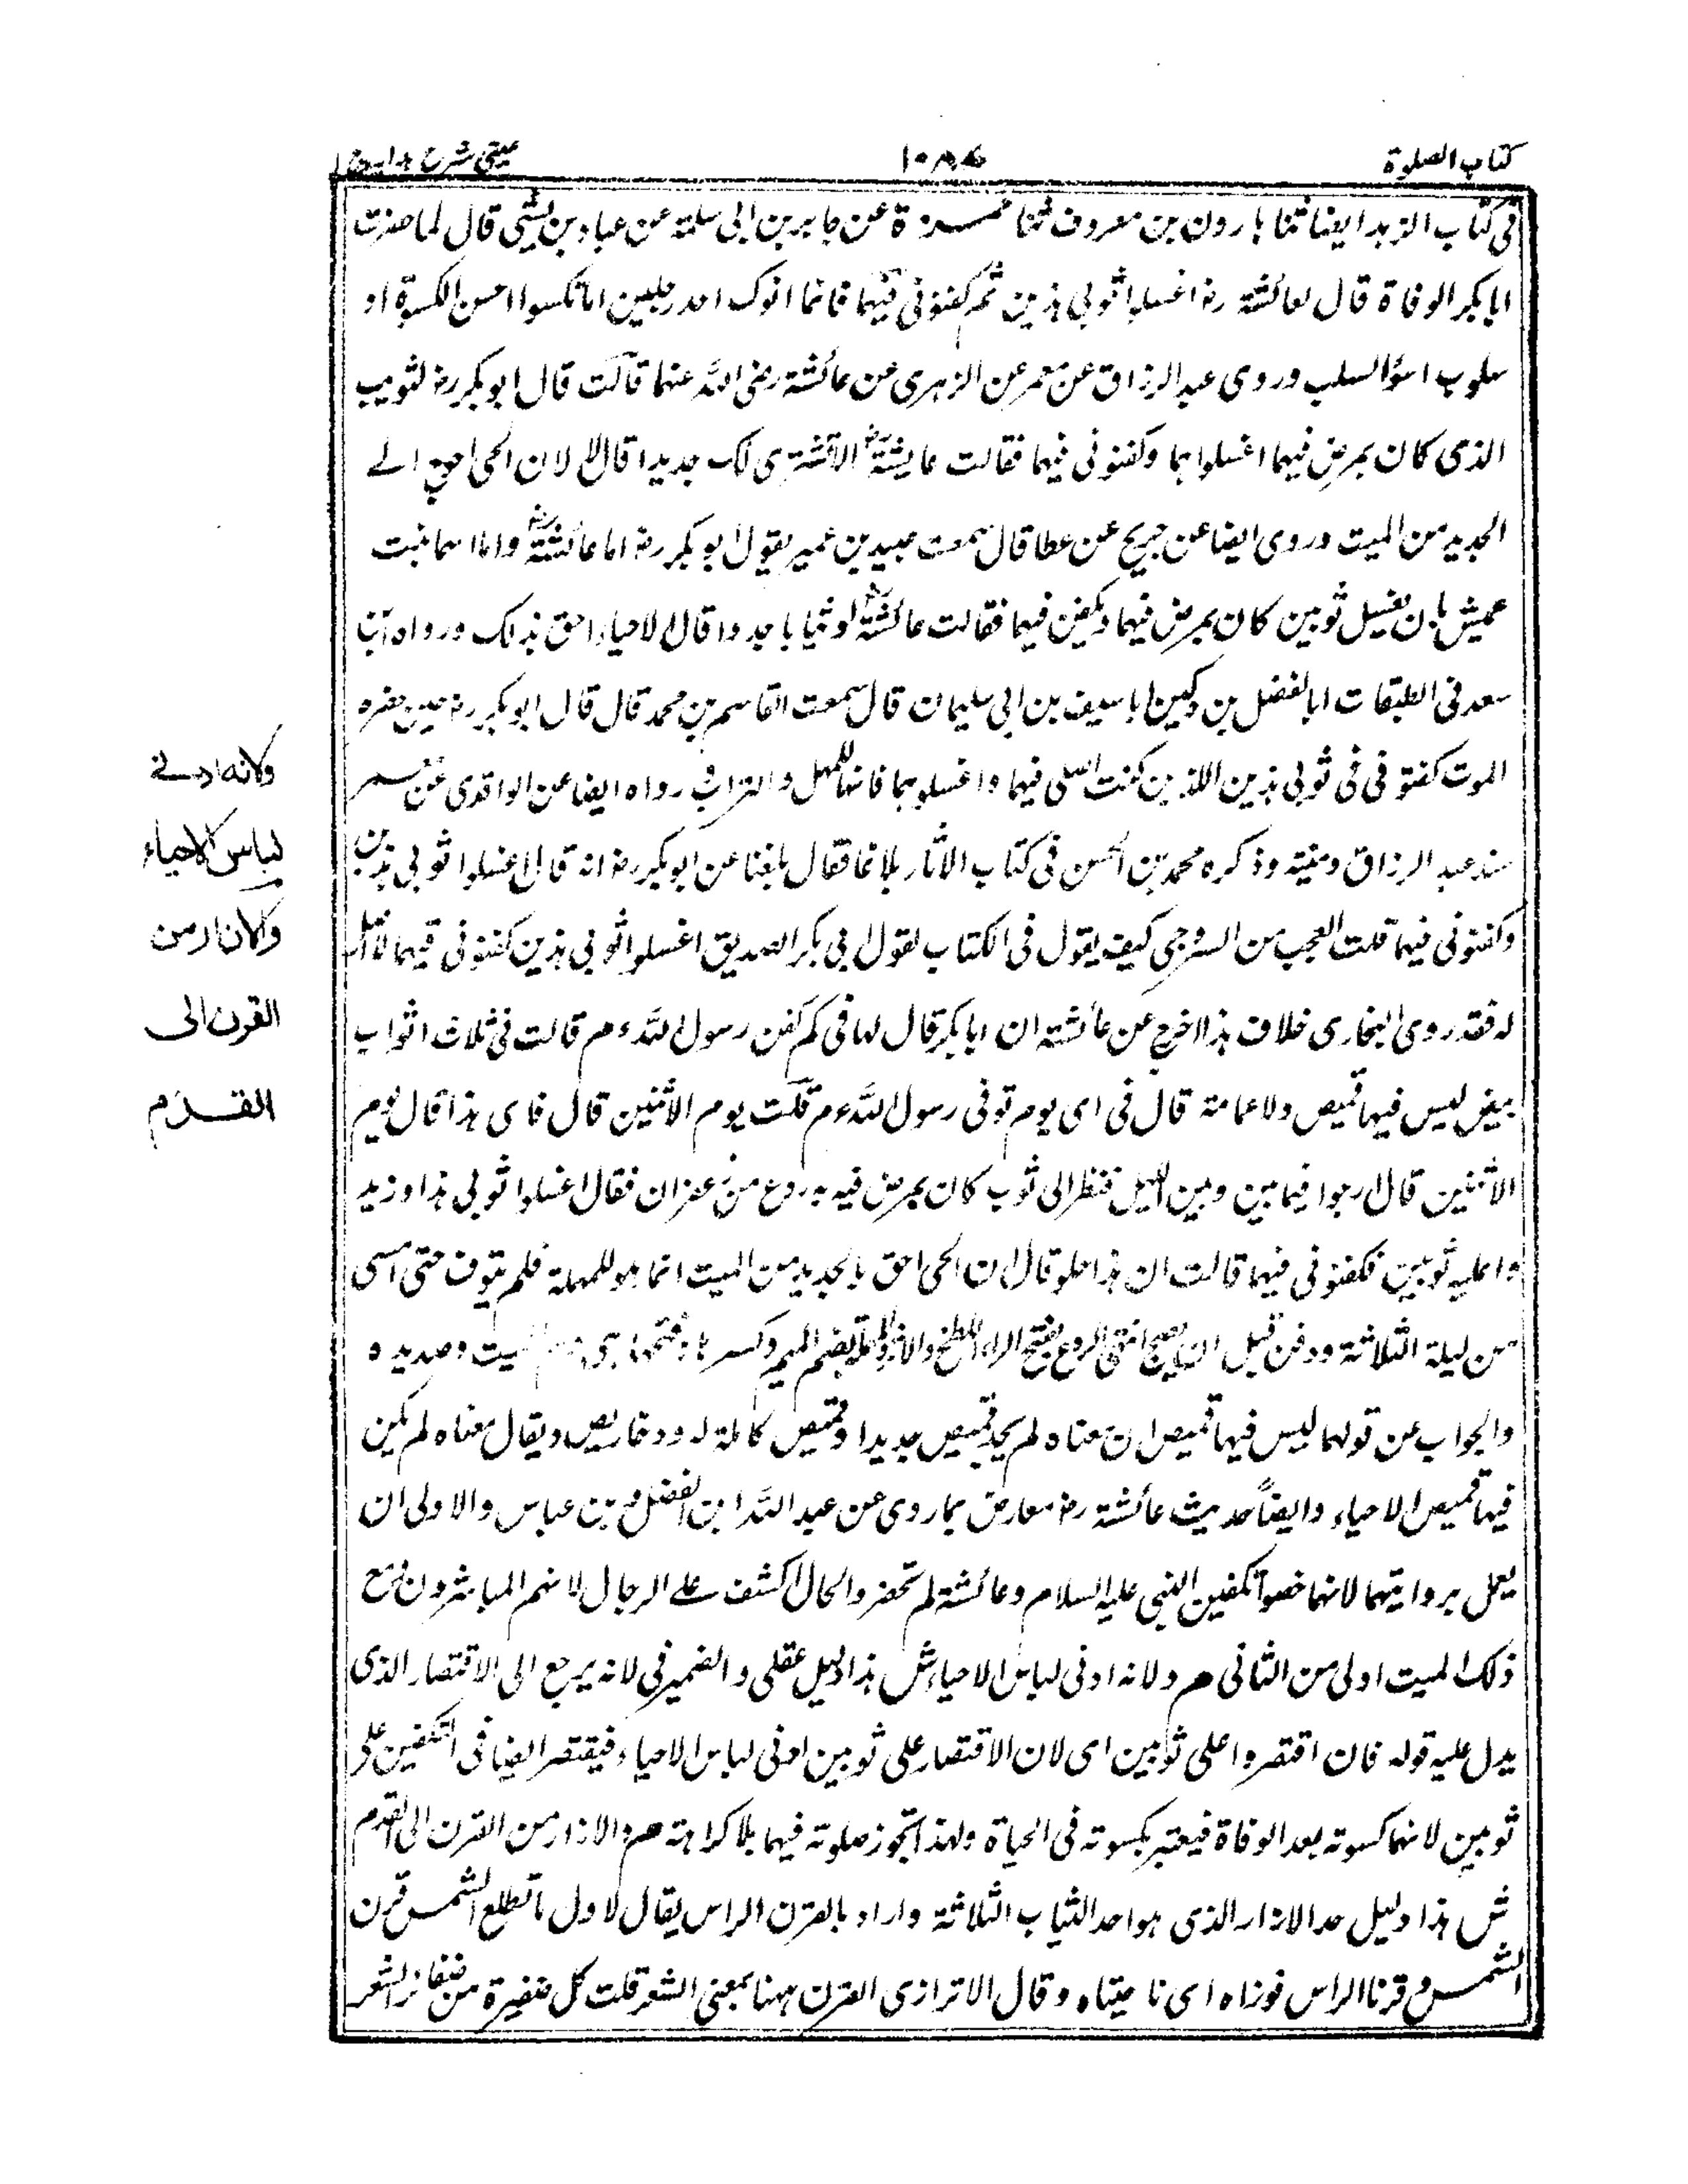 كتاب الصلوة
١٠٨٤
عينى شرح هداية ج ١
فى كتاب الزهد ايضا ثنا هارون بن معروف ثنا ضمرة عن جابر بن ابى سلمة عن عباد بن قال لما حضرت
ابا بكر الوفاة قال لعائشة رض اغسلوا ثوبى هذين ثم كفنونى فيهما فانما ابوك احد رجلين اما مكسوا احسن الكسوة او
سلوب اسؤالسلب وروى عبد الرزاق عن معمر عن الزهرى عن عائشة رضى الله عنها قالت قال ابو بكر رض لثوبيه
الذى كان يمرض فيهما اغسلوا هما وكفنونى فيهما فقالت عايشة رض الا نشترى لك جديدا قال لا لان الحى احوج الى
الجديد من الميت وروى ايضا عن جريج عن عطا قال سمعت عبيد بن عمير يقول ابو بكر رض اما عائشة رض واما اسما بنت
عميش بان يغسل ثوبين كان يمرض فيهما ويكفن فيهما فقالت عائشة رض او ثيابا جددا قال الاحياء احق بذلك ورواه ابن
سعد فى الطبقات ابا لفضل بن دكين ابا سيف بن ابى سليمان قال سمعت القاسم بن محمد قال قال ابو بكر رض حين حضره
الموت كفنونى فى ثوبى هذين اللذين كنت اصلى فيهما واغسلوهما فانهما للمهل والتراب رواه ايضا عن الواقدى عن معمر
سند عبد الرزاق ومتنه وذكره محمد بن الحسن فى كتاب الاثار بلاغا فقال بلغنا عن ابو بكر رض انه قال اغسلوا ثوبى هذين
وكفنونى فيهما قلت العجب من السروجى كيف يقول فى الكتاب لقول ابى بكر الصديق اغسلوا ثوبى هذين كفنونى فيهما لا اصل
له فقد روى البخارى خلاف هذا اخرج عن عائشة ان ابا بكر قال لها فى كم كفن رسول الله ء م قالت فى ثلاث اثواب
بيض ليس فيها قميص ولا عمامة قال فى اى يوم توفى رسول الله ء م قلت يوم الاثنين قال فاى هذا قال يوم
الاثنين قال ارجوا فيما بين وبين الليل فنظر الى ثوب كان يمرض فيه به ردع من زعفران فقال اغسلوا ثوبى هذا وزيد
وا عليه ثوبين فكفنونى فيها قالت ان هذا خلق قال ان الحى احق بالجديد من الميت انما هو للمهلة فلم يتوف حتى امسى
من ليلة الثلاثة ودفن قبل ان يصبح انتهى الردع بفتح الراء اللطخ والاثر والمهلة بضم الميم وكسرها وفتحها هى الميت وصديده
والجواب عن قولها ليس فيها قميص ان معناه لم يجد قميص جديدا وقميص كاملة له ودخاريص ويقال معناه لم يكن
فيها قميص الاحياء وايضاً حديث عائشة رض معارض بما روى عن عبد الله ابن الفضل و بن عباس والاولى ان
يعمل بروايتهما لانهما حضرا تكفين النبى عليه السلام وعائشة لم تحضر والحال اكشف على الرجال لانهم المباشرون
ذلك الميت اولى من الثانى هم ولانه ادنى لباس الاحياء ش هذا دليل عقلى والضمير فى لانه يرجع الى الاقتصار الذى
يدل عليه قوله فان اقتصروا على ثوبين اى لان الاقتصار على ثوبين ادنى لباس الاحياء فيقتصر ايضا فى التكفين على
ثوبين لانهما كسوته بعد الوفاة فيعتبر بكسوته فى الحياة ولهذا تجوز صلوته فيهما بلا كراهة هم والازار من القرن الى القدم
ش هذا دليل حد الازار الذى هو احد الثياب الثلاثة واراد بالقرن الراس يقال لاول ما تطلع الشمس قرن
الشمس وقرنا الراس فوزاه اى ناحيتاه وقال الاترازى القرن ههنا بمعنى الشعر قلت كل ضفيرة من ضفائر الشعر
ولانه ادنى
لباس الاحياء
والازار من
القرن الى
القدم